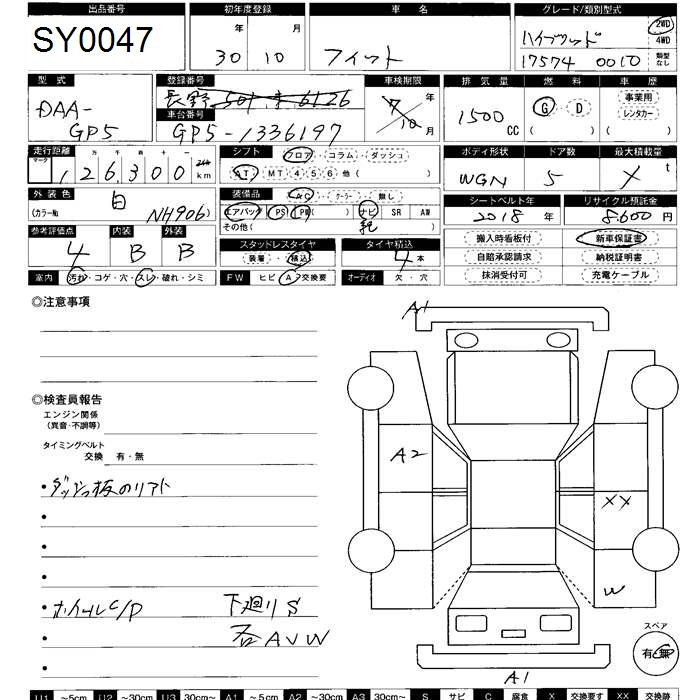 出品番号 初年度登録 車名 グレード/類別型式
SY0047 30年 10月 フィット ハイブリッド 2WD 4WD
17574 0010 類型なし
型式 登録番号 車検期限 排気量 燃料 車歴
DAA-GP5 長野 年 月 1500cc G・D 事業用
車台番号 7/10 ( ) レンタカー
GP5-1336197
走行距離 シフト フロア・コラム・ダッシュ ボディ形状 ドア数 最大積載量
マーク 十 万 千 百 十 一
126300 km AT・MT 4 5 6 他( ) WGN 5 t
外装色 白 装備品 AC・クーラー・無し シートベルト年 リサイクル預託金
(カラーNo. NH906) エアバック PS PW( ) ナビ SR AW 2018年 8600円
その他( )
参考評価点 内装 外装 スタッドレスタイヤ タイヤ積込 搬入時看板付 新車保証書
4 B B 装着・積込 4本 自賠承認請求 納税証明書
室内 汚れ・コゲ・穴・スレ・破れ・シミ FW ヒビ・A・交換要 オーディオ 欠・穴 抹消受付可 充電ケーブル
◎注意事項
A1
◎検査員報告
エンジン関係
(異音・不調等)
タイミングベルト
交換 有・無
A2
・ダッシュ板のリフト
XX
・ホイルC/P 下廻りS
W
・各AUW
スペア
有・無
A1
U1 ~5cm U2 ~30cm U3 30cm~ A1 ~5cm A2 ~30cm A3 30cm~ S サビ C 腐食 X 交換要す XX 交換跡